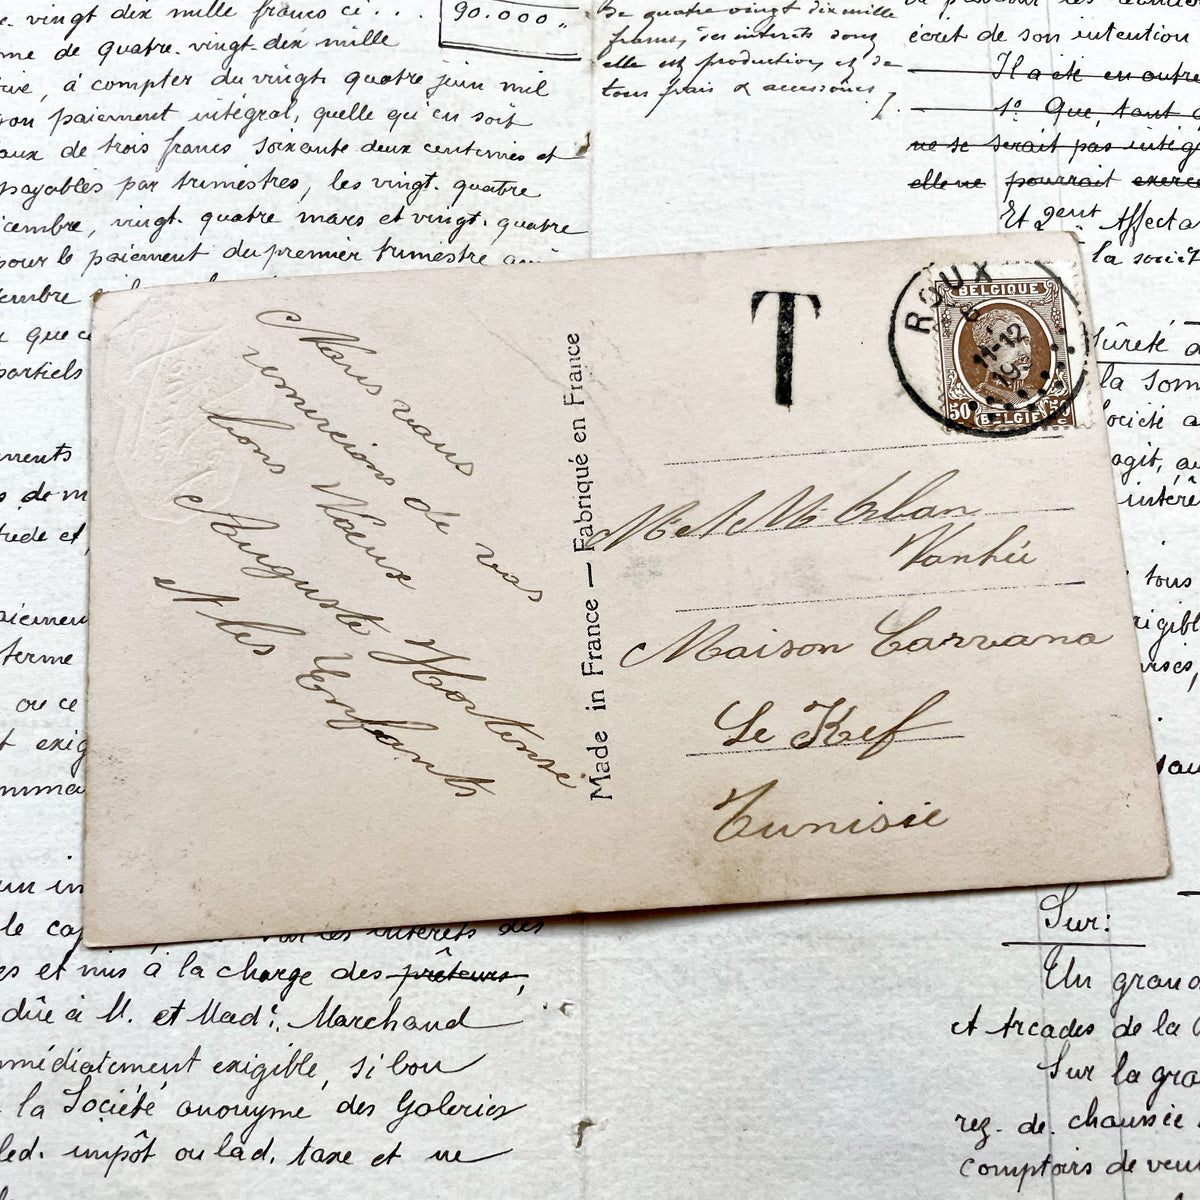 e. vingt dix mille francs ci . . .
90.000 "
me de quatre-vingt-dix mille
, à compter du vingt quatre juin mil
son paiement intégral, quelle qu'en soit
aux de trois francs soixante deux centimes et
payables par trimestres, les vingt-quatre
cembre, vingt-quatre mars et vingt-quatre
pour le paiement du premier trimestre
tembre
que
partiels
De quatre vingt dix mille
francs, des intérêts dont
elle est productive, et de
tous frais & accessoires
écrit de son intention
Il a été en outre
1° Que, tant
ne se serait pas intég
elle ne pourrait exerce
Et 2ent Affecta
la sociét
Sûreté
la som
ociété a
agit, au
intérê
tous
xigibl
Nous vous
remercions de vos
bons Vœux
Auguste Hortense
et les Enfants
Made in France — Fabriqué en France
T
ROUX
6
11-12
19
BELGIQUE
50
50
c
BELGIË
Mr et Mme Orlan
Vanhée
Maison Carvana
Le Kef
Tunisie
ments
de m
aiement
terme
ou ce
exig
mma
un in
le ca
les intérêts des
es et mis à la charge des prêteurs,
dûe à M. et Made. Marchand
mmédiatement exigible, si bon
la Société anonyme des Galeries
led. impôt ou lad. taxe et ne
Sur:
Un grand
et Arcades de la
Sur la gra
rez-de-chaussée
comptoirs de ven